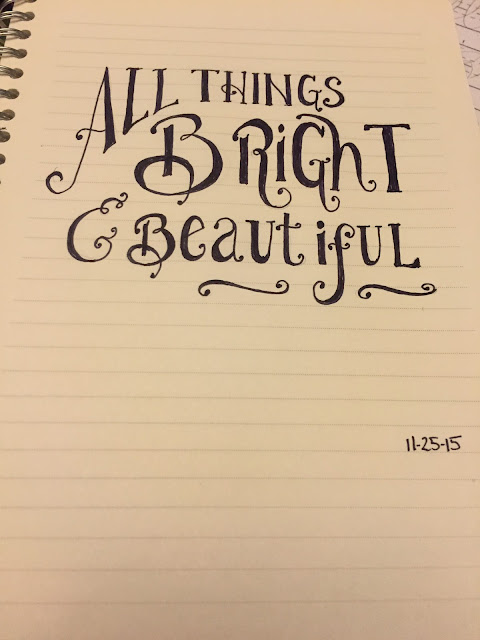 ALL THINGS
BRiGhT
& BeautifuL
11-25-15